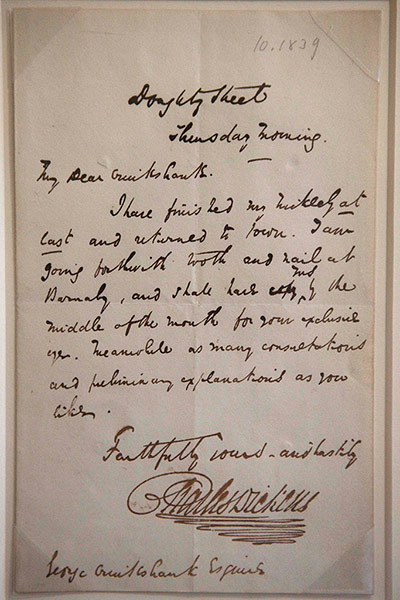 10.1839
Doughty Street
Thursday Morning.
My Dear Cruikshank.
I have finished my Nickleby at
last and returned to town. I am
going forthwith tooth and nail at
Barnaby, and shall have MS by the
middle of the month for your exclusive
eye. Meanwhile as many consultations
and preliminary explanations as you
like.
Faithfully Yours – and hastily
Charles Dickens
George Cruikshank Esquire